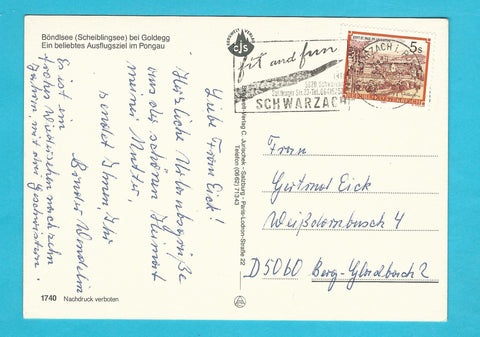 Böndlsee (Scheiblingsee) bei Goldegg
Ein beliebtes Ausflugsziel im Pongau
Liebe Frau Eick!
Herzliche Urlaubsgrüße
aus der schönen Heimat
meiner Mutter,
sendet Ihnen, Ihr
Bruder Wendelin
Es ist ein
frohes Wiedersehen nach zehn
Jahren, mit den Geschwistern.
1740 Nachdruck verboten
CJS
Verlag C. Jurischek - Salzburg - Paris-Lodron-Straße 22
Telefon (0662) 71343
fit and fun
SCHWARZACH
5s
Frau
Gertrud Eick
Weißdornbusch 4
D5060 Berg-Gladbach 2